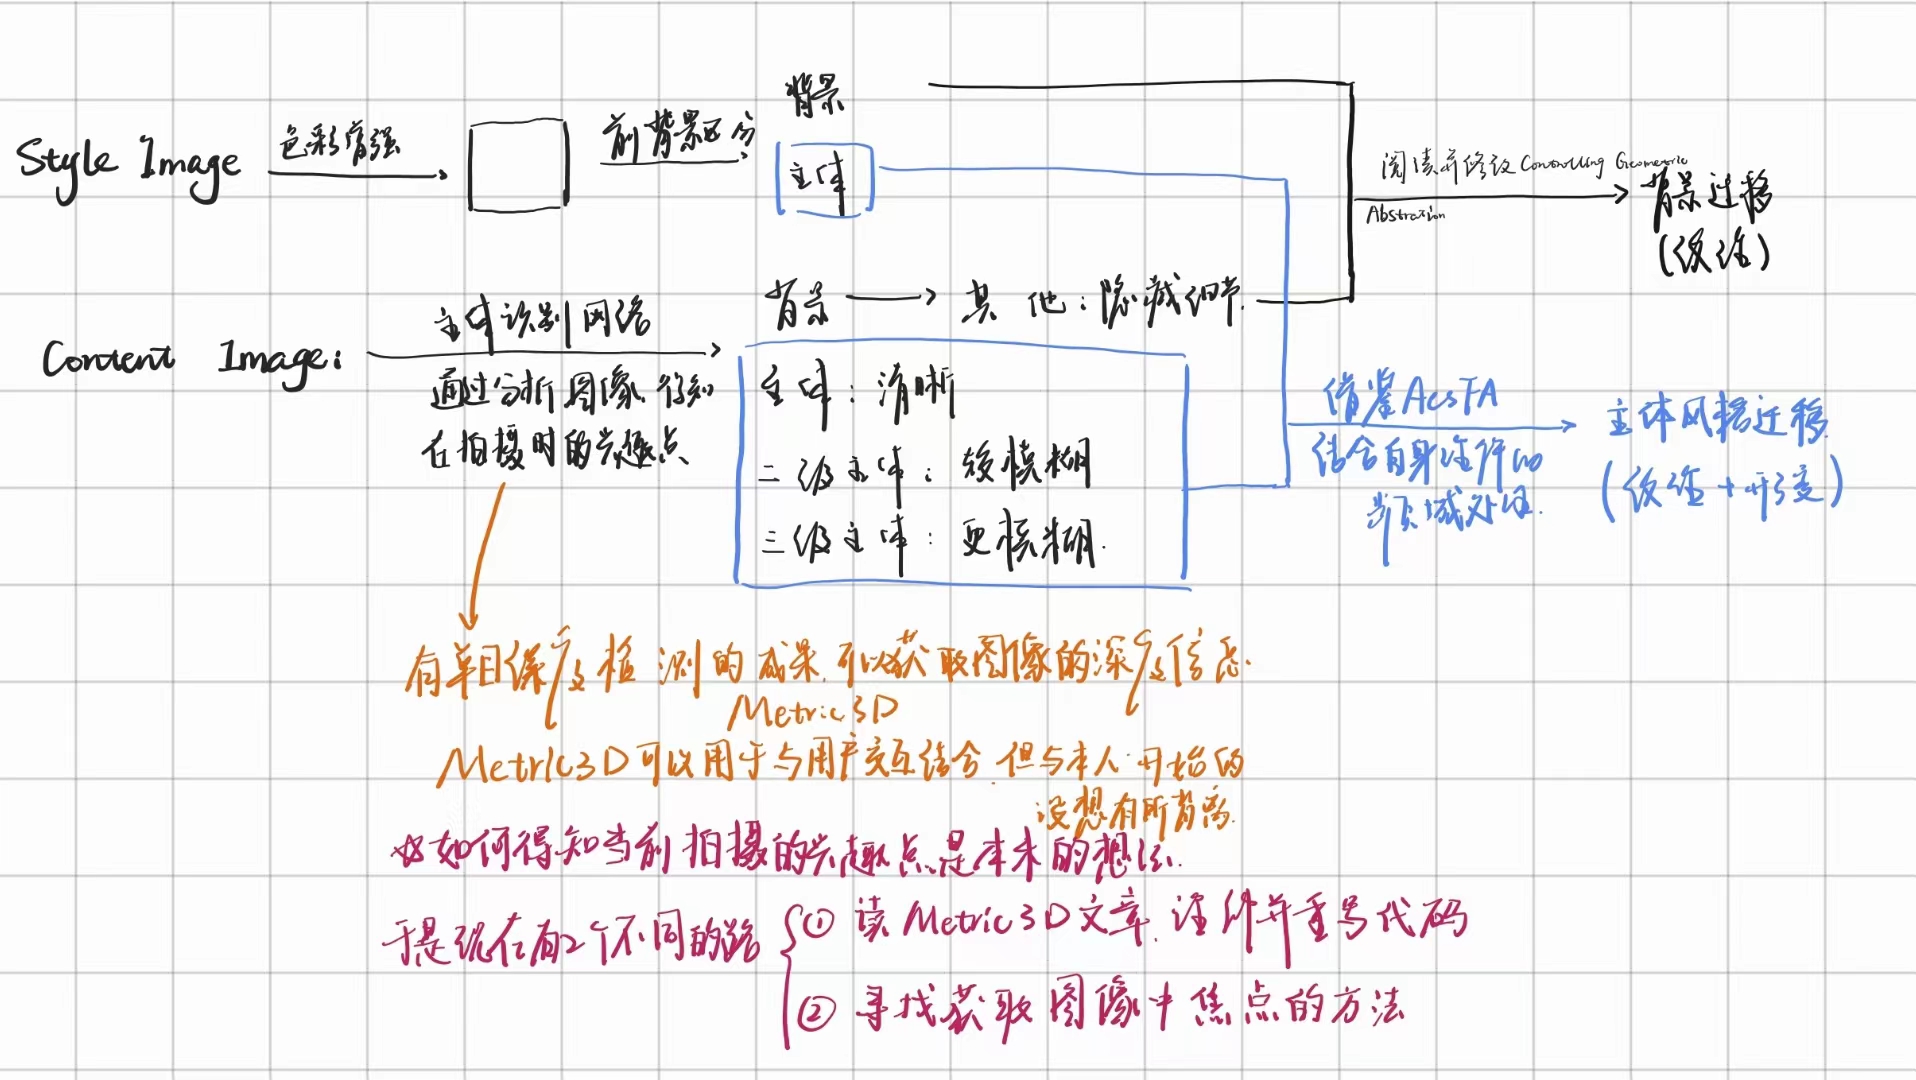 Style Image
色彩增强
前背景区分
背景
主体
阅读并修改Controlling Geometric
Abstration
背景迁移
(纹理)
Content Image:
主体识别网络
通过分析图像,得知
在拍摄时的兴趣点
背景
其他:隐藏细节.
主体:清晰
二级主体:较模糊
三级主体:更模糊.
借鉴AcsTA
结合自身注释的
频域处理.
主体风格迁移
(纹理+形变)
有单目深度检测的成果,可以获取图像的深度信息.
Metric3D
Metric3D可以用于与用户交互结合,但与本人开始的
设想有所背离.
如何得知当前拍摄的兴趣点是本来的想法.
于是现在有2个不同的路
① 读Metric3D文章,注释并重写代码
② 寻找获取图像中焦点的方法